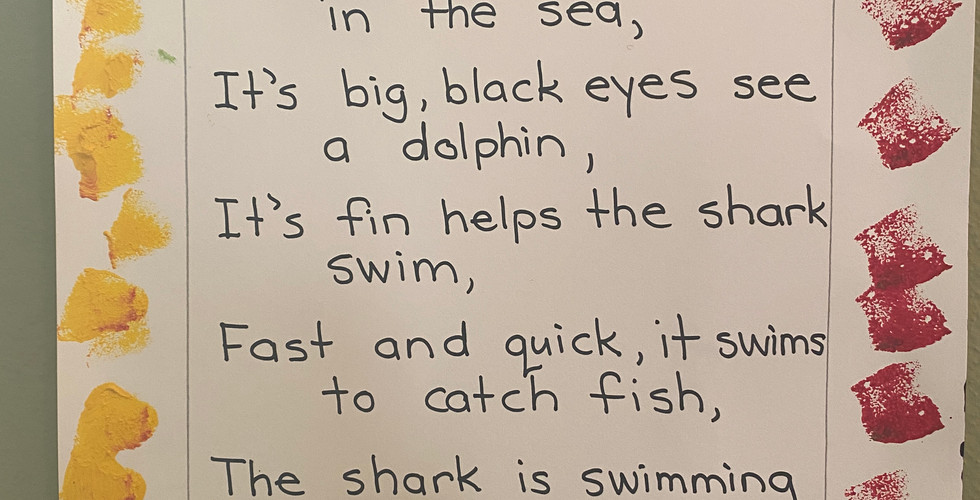 in the sea,
It's big, black eyes see
a dolphin,
It's fin helps the shark
swim,
Fast and quick, it swims
to catch fish,
The shark is swimming